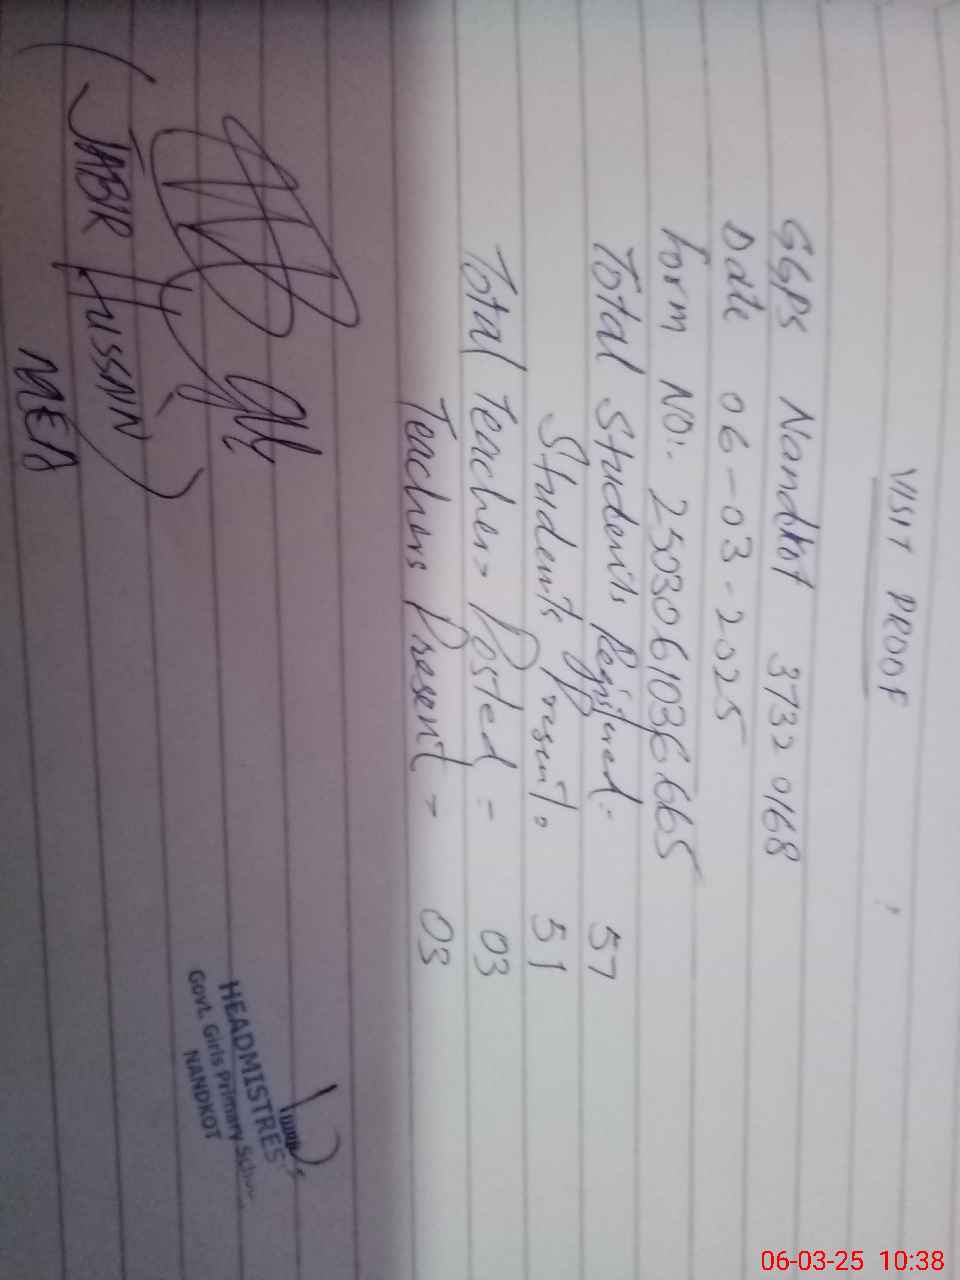 VISIT PROOF
GGPS Nandkot 37320168
Date 06-03-2025
Form NO:. 2503061036665
Total Students Registered:- 57
Students Present: 51
Total Teachers Posted = 03
Teachers Present = 03
(JABIR HUSSAIN)
MEA
HEADMISTRES
Govt. Girls Primary School
NANDKOT
06-03-25 10:38